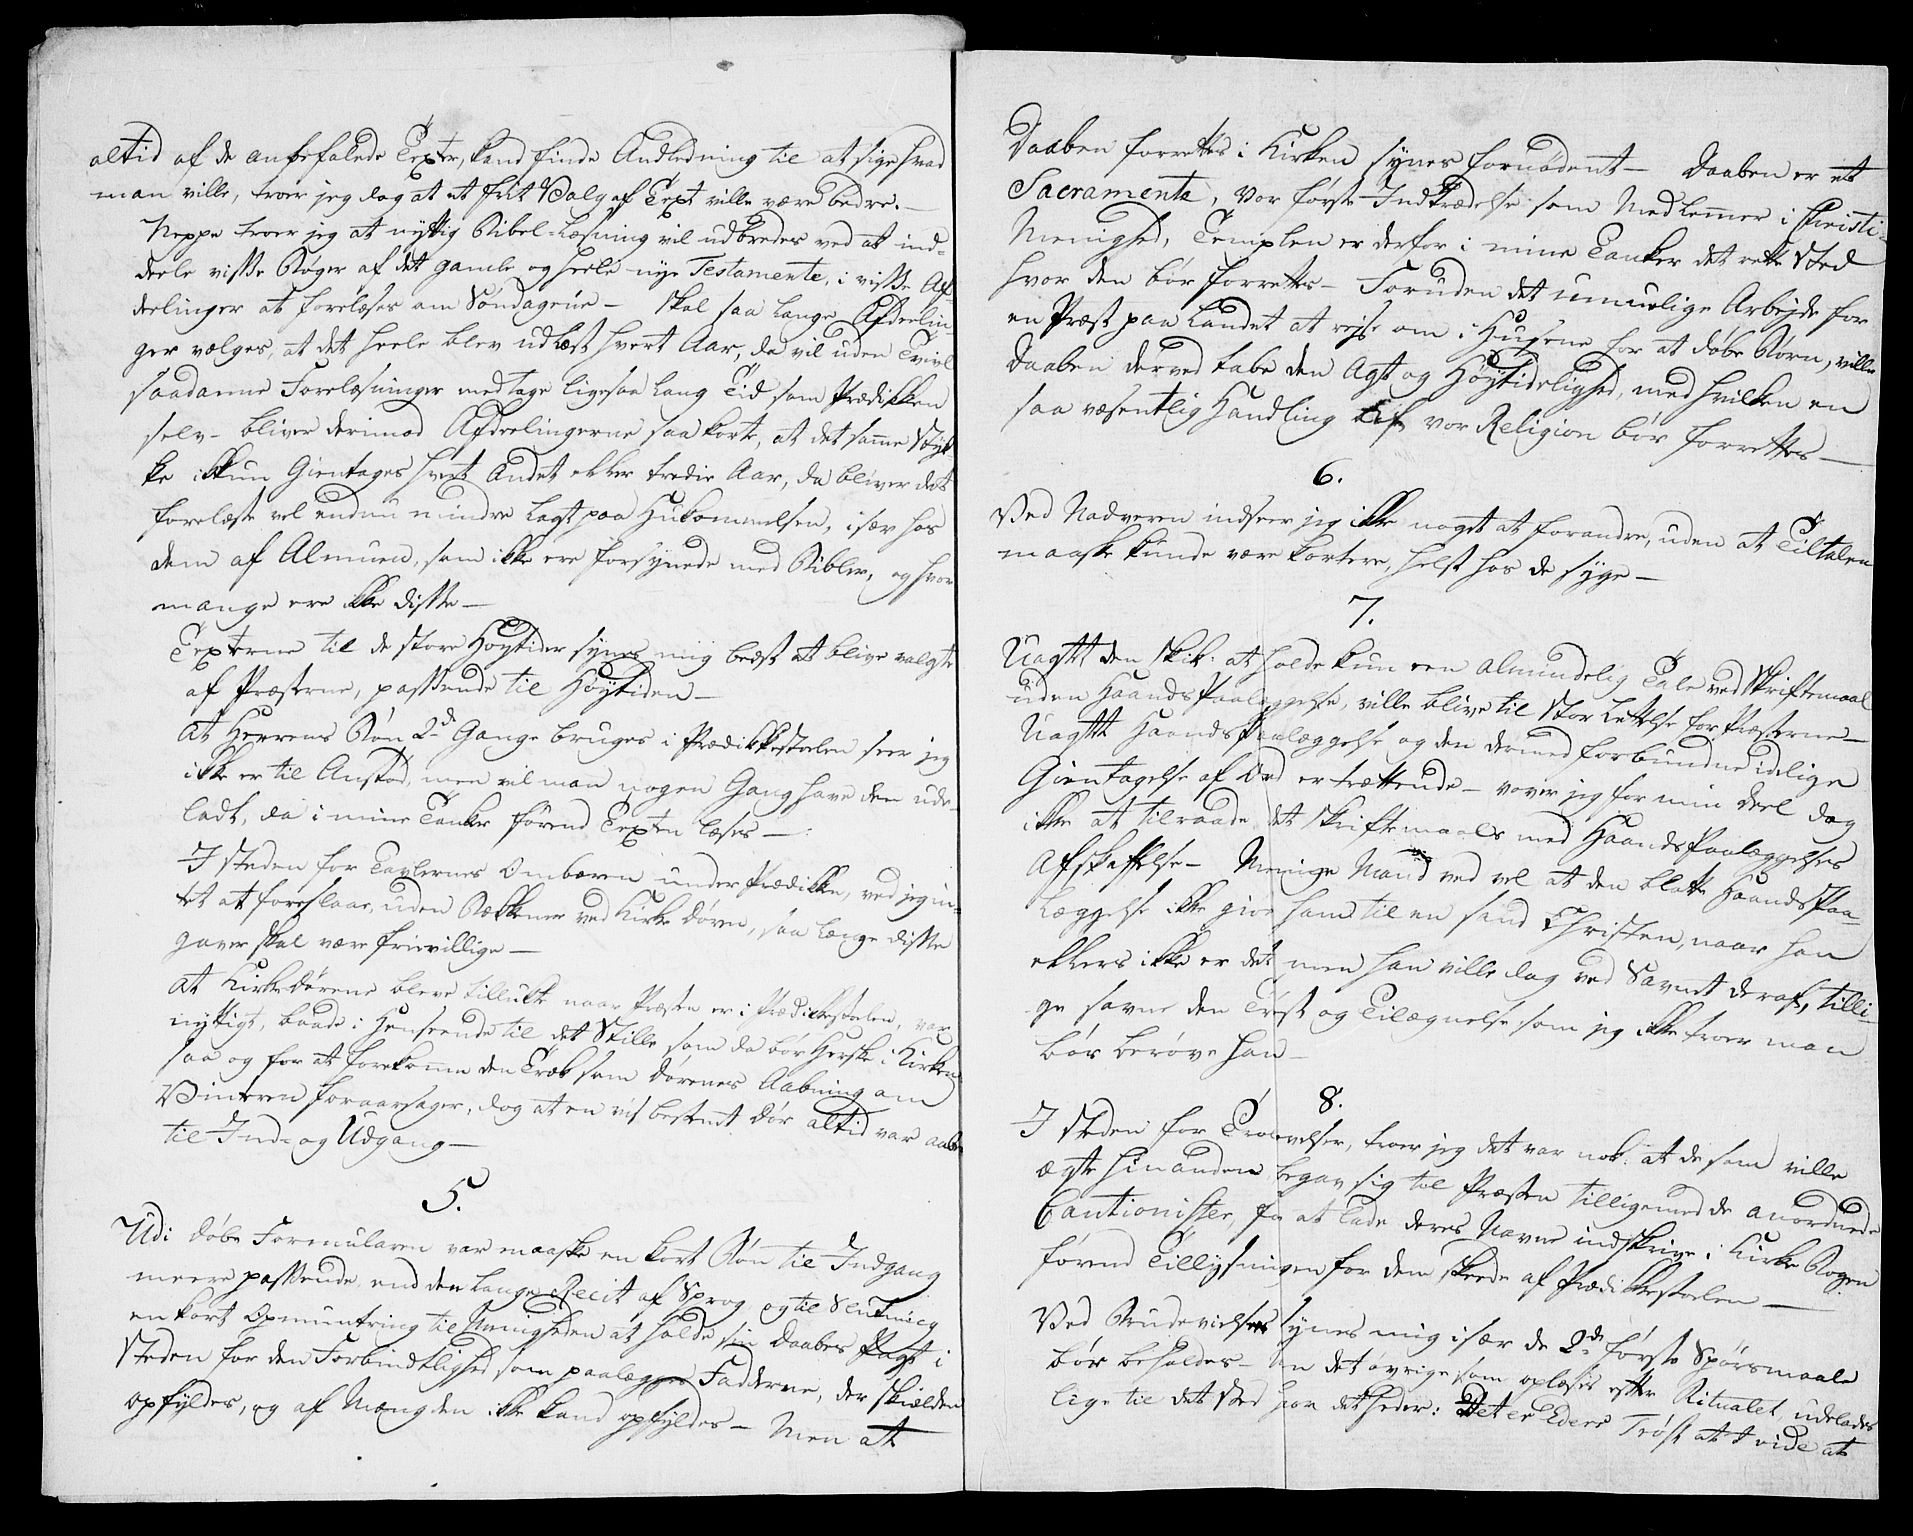 altid af de anbefalede Texter, kand finde Andledning til at sige hvad
man ville, troer jeg dog at et frit Valg af Text ville være bedre. —
Neppe troer jeg at nyttig Bibel-Læsning vil udbredes ved at ind-
deele visse Bøger af det gamle og heele nye Testamente, i visse Af-
deelinger at forelæses om Søndagene — Skal saa lange Afdeelin-
ger vælges, at det heele blev udlæst hvert Aar, da vil uden Tvivl
saadanne Forelæsninger medtage ligesaa lang Tid som Prædikken
selv — bliver derimod Afdeelingerne saa korte, at det samme Støk-
ke ikkun Gientages hvert Andet eller tredie Aar, da bliver det
forelæste vel endnu mindre lagt paa Hukommelsen, især hos
dem af Almuen, som ikke ere forsynede med Bibler, og hvor
mange ere ikke disse —
Texterne til de store Høytider synes mig bedst at blive valgte
af Præsterne, passende til Høytiden —
At Herrens Bøn 2de Gange bruges i Prædikkestoelen seer jeg
ikke er til Anstød, men vil man nogen Gang have den ude-
ladt, da i mine Tanker førend Texten læses —
I steden for Tavlernes Ombæren under Prædikken, ved jeg in-
tet at foreslaae, uden Bækkener ved Kirke Døren, saa længe disse
gaver skal være frievillige —
At Kirkedørene bleve tillukte naar Præsten er i Prædikkestoelen, var
nyttigt, baade i Henseende til det Stille som da bør Herske i Kirken
saa og for at forekomme den Træk som Dørenes Aabning om
Vinteren foraarsager, dog at en vis bestemt Dør altid var aaben
til Ind- og Udgang —
5.
Udi Døbe Formularen var maaske en kort Bøn til Indgang
meere passende end den lange Recit af Sprog, og til Slutning
en kort Opmuntring til Menigheden at holde sin Daabes Pagt i
steden for den Forbindtlighed som paalægges Fadderne, der skielden
opfyldes, og af Mængden ikke kand opfyldes — Men at
Daaben forrettes i Kirken synes fornødent — Daaben er et
Sacramente, vor første Indtrædelse som Medlemmer i Christi
Menighed, Templen er derfor i mine Tanker det rette Sted
hvor den bør forrettes — Foruden det umuelige Arbejde for
en Præst paa Landet at rejse om i Husene for at døbe Børn, ville
Daaben derved tabe den Agt og Høytidelighed, med hvilken en
saa væsentlig Handling af vor Religion bør forrettes —
6.
Ved Nadveren indseer jeg ikke noget at forandre, uden at Tiltalen
maaske kunde være kortere, helst hos de syge —
7.
Uagtet den Skik: at holde kun een almindelig Tale ved Skriftemaal
uden Haands Paalæggelse, ville blive til stor Lettelse for Præsterne —
Uagtet Haands Paalæggelse og den dermed forbundne idelige
Gientagelse af Ord er trættende — vover jeg for min Deel dog
ikke at tilraade det Skriftemaals med Haands Paalæggelses
Afskaffelse — Menige Mand ved vel at den blotte Haands Paa-
læggelse ikke giør ham til en sand Christen, naar han
ellers ikke er det, men han ville dog ved Savnet deraf, tilli-
ge savne den Trøst og Tilægnelse som jeg ikke troer man
bør berøve han —
8.
I steden for Troelovelser, troer jeg det var nok: at de som ville
ægte hinanden begav sig til Præsten tilligemed de anordnede
Cautionister, for at lade deres Navne indskrive i Kirke Bogen
førend Tillysningen for dem skeede af Prædikkestoelen —
Ved Brudevielser synes mig især de 2de første Spørsmaale
bør beholdes — Un det øvrige som oplæses efter Ritualet udelades
lige til det Sted hvor det heder: Det er Eders Trøst at I vide at